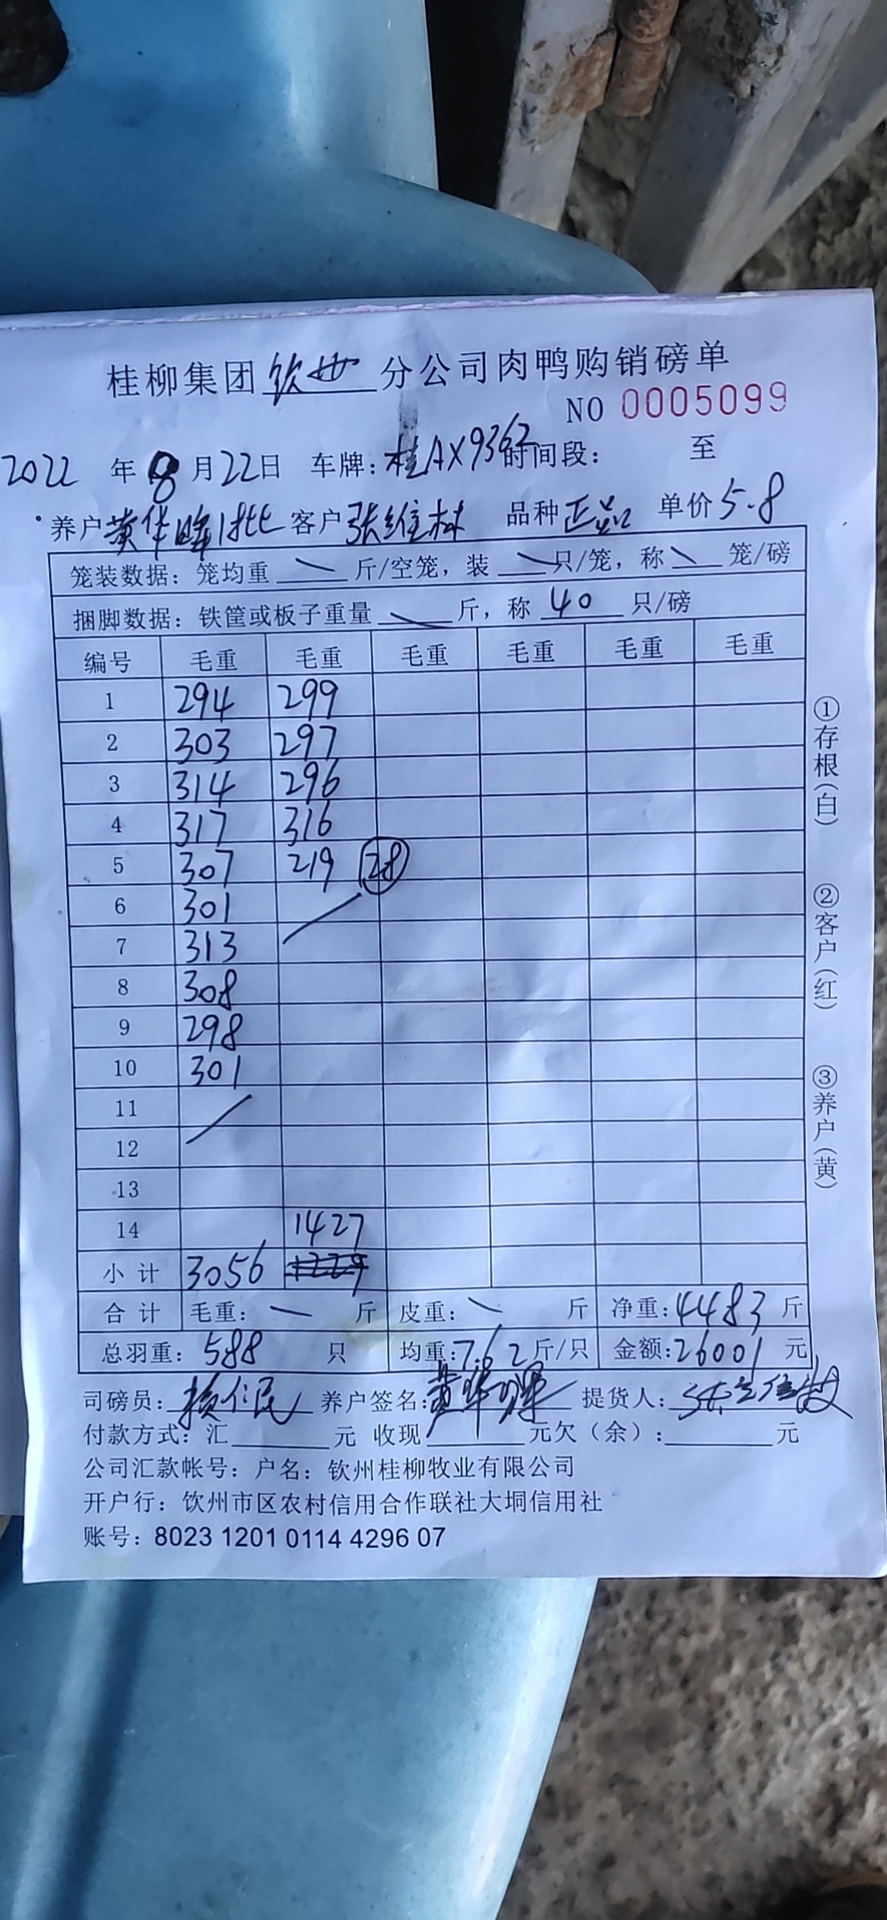 桂柳集团 钦州 分公司肉鸭购销磅单
NO 0005099
2022 年 8 月 22 日 车牌：桂AX9363 时间段： 至
养户 黄华晖1批 客户 张维林 品种 正品 单价 5.8
笼装数据：笼均重 斤/空笼，装 只/笼，称 笼/磅
捆脚数据：铁筐或板子重量 斤，称 40 只/磅
编号 毛重 毛重 毛重 毛重 毛重 毛重
1 294 299
2 303 297
3 314 296
4 317 316
5 307 219 28
6 301
7 313
8 308
9 298
10 301
11
12
13
14 1427
小计 3056 1229
合计 毛重：— 斤 皮重： 斤 净重：4483 斤
总羽重：588 只 均重：7.62 斤/只 金额：26001 元
司磅员： 养户签名：黄华晖 提货人：
付款方式：汇 元 收现 元欠（余）： 元
公司汇款帐号：户名：钦州桂柳牧业有限公司
开户行：钦州市区农村信用合作联社大垌信用社
账号：8023 1201 0114 4296 07
①存根（白）
②客户（红）
③养户（黄）